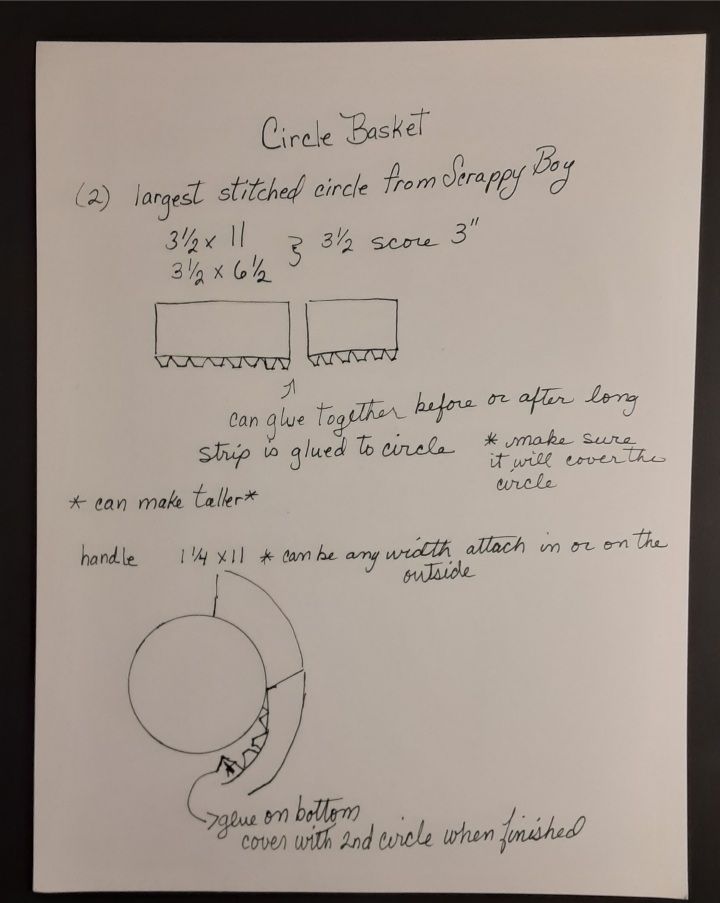 Circle Basket
(2) largest stitched circle from Scrappy Boy
3 1/2 x 11
3 1/2 x 6 1/2 } 3 1/2 score 3"
can glue together before or after long
strip is glued to circle
* make sure
it will cover the
circle
* can make taller *
handle 1 1/4 x 11 * can be any width attach in or on the
outside
glue on bottom
cover with 2nd circle when finished